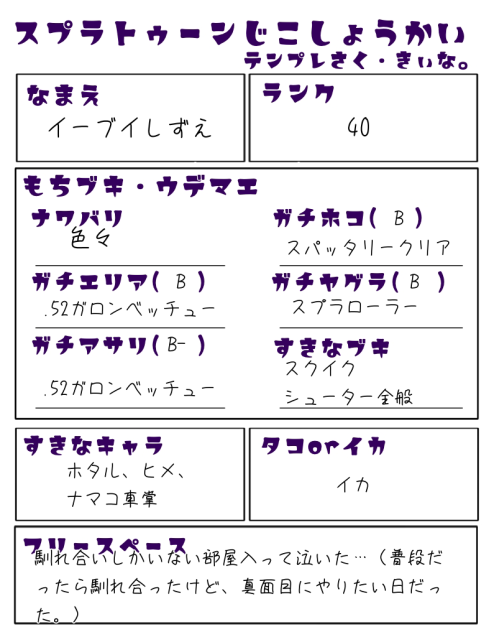 スプラトゥーンじこしょうかい
テンプレさく・きぃな。
なまえ
イーブイしずえ
ランク
40
もちブキ・ウデマエ
ナワバリ
色々
ガチホコ( B )
スパッタリークリア
ガチエリア( B )
.52ガロンベッチュー
ガチヤグラ( B )
スプラローラー
ガチアサリ( B- )
.52ガロンベッチュー
すきなブキ
スクイク
シューター全般
すきなキャラ
ホタル、ヒメ、
ナマコ車掌
タコorイカ
イカ
フリースペース
馴れ合いしかいない部屋入って泣いた…(普段だ
ったら馴れ合ったけど、真面目にやりたい日だっ
た。)